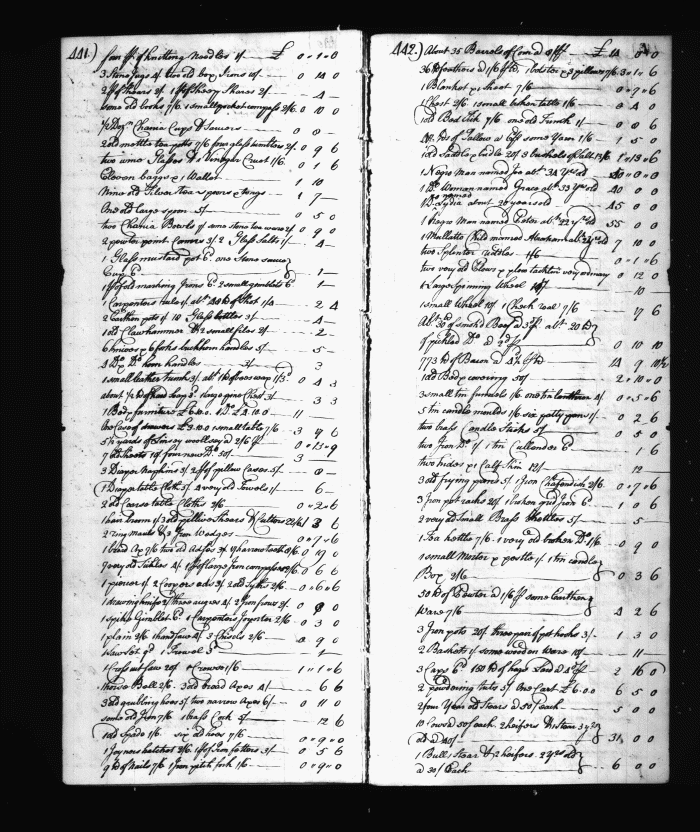 441)
four pr of knitting Needles 1/ £ 0 " 1 " 0
3 Stone Jugs 4/ two old box Irons 10/ 0 14 0
2 pr of Shears 2/ 1 pr of Sheep Shears 2/ 4
some old books 7/6 1 small pocket compass 2/6 0 10 0
1/2 Dozn Chania Cups & Saucers 0 8
2 old mettle tea potts 7/6 four glass tumblers 2/ 0 9 6
two wine Glasses & 1 Vinegar Cruet 1/6 0 1 6
Eleven baggs & 1 Wallet 1 10
Nine old Silver tea spoons & tongs 1 7
One old large spoon 5/ 0 5 0
two Chania Bowls & some stone tea ware 0 9 0
2 pewter point Covers 3/ 2 Glass Salts 1/ 4
1 Glass mustard pot 6d. one Stone sauce
Cup 6d 1
1 pr of old marking Irons 6d 2 small gimblets 6d 1
1 Carpenters rule 1/ abt 40 lb of Shot 1/4 2 4
2 Earthen pots 1/ 10 Glass bottles 3/ 4
1 old Clawhammer & 2 small files 2/ 2
6 knives & 6 forks buckhorn handles 5/ 5
4 Do & Do horn handles 3/ 3
1 small leather trunk 3/ abt 1 lb of bees wax 1/3 0 4 3
about 1/2 lb of 3d 1 large pine Chest 3/ 3 3
1 Bed & furniture £6.10.0. 1 Do £4.10.0 11
One Case of drawers £3.10.0 1 small table 7/6 3 17 6
5 1/2 yards of Linsey woolsey @ 2/6 0 " 13 " 9
7 old Sheets 10/ four new Do 50/ 3
3 Diaper Napkins 3/ 2 pr of pillow Cases 5/ 8
1 Diaper table Cloth 5/ 4 very old Towels 1/ 6
2 old Coarse table Cloths 2/6 0 " 2 " 6
1 hair broom 1/ 3 old 1 8 6
2 ring mauls & 3 Iron Wedges 0 " 7 " 6
1 broad Ax 7/6 two old Adzes 3/ 17 harrow teeth 8/6 0 19 0
7 very old Sickles 4/ 1 pr of large Iron compasses 2/6 0 6 6
1 piercer 1/ 2 Coopers adzs 3/ 2 old Syths 2/6 0 " 6 " 6
1 drawing knife 2/ three augers 4/ 2 Iron frows 2/ 0 8 0
1 spike Gimblet 6d 1 Carpenters Joynter 2/6 0 3 0
1 plain 2/6 handsaw 4/ 3 Chisels 2/6 0 9 0
1 Saw Set 1 Trowel 1
1 Cross cut Saw 20/ 0 Crowes 1/6 1 " 1 " 6
1 horse Bell 2/6. 3 old broad Axes 4/ 6 6
3 old grubing hoes 5/ two narrow Axes 6/ 0 11 0
some old Iron 7/6 1 brass Cock 5/ 12 6
1 old Spade 1/6 six old hoes 7/6 0 " 9 " 0
1 Joyners hatchet 2/6 1 pr of Iron fetters 3/ 0 5 6
9 lb of Nails 7/6 1 Iron pitch fork 1/6 0 " 9 " 0
442.)
About 35 Barrels of Corn @ 8/ £14 0 0
36 lb feathers @ 1/6 1 bolster & 3 pillows 7/6 3 " 1 " 6
1 Blanket & 1 Sheet 7/6 0 " 7 " 6
1 Chest 2/6 1 small broken table 1/6 0 4 0
1 old Bed Tick 7/6 one old Trunk 1/ 0 8 6
lbs of Tallow @ 6d some Yarn 1/6 1 5 0
1 old Saddle & bridle 20/ 3 bushels of Salt 13/6 1 " 13 " 6
1 Negro Man named Joe abt 34 yrs old 40 " 0 " 0
1 Do Woman named Grace abt 33 yrs old 40 0 0
1 Do named Lydia about 26 years old 45 0 0
1 Negro Man named Peter abt 22 yrs old 55 0 0
1 Mulatto Child named Hannah abt 2 yrs old 7 10 0
two Splinter riddles 1/6 0 " 1 " 6
two very old Plows & plow tackling very ordinary 0 12 0
1 Large Spinning Wheel 10/ 10
1 small Wheel 10/ 1 Check reel 7/6 17 6
Abt 30 of smok'd Beef @ 3d abt 20 lb
of pickled Do @ 2d 0 10 10
773 lb of Bacon @ 4 1/2 14 9 10 1/2
1 old Bed & covering 50/ 2 " 10 " 0
3 small tin funnels 1/6 one tin lanthorn 4/ 0 " 5 " 6
5 tin candle moulds 1/6 six patty pans 1/ 0 2 6
two brass Candle Sticks 5/ 0 5 0
two Iron Do 1/ 1 tin Cullender 6d 1 6
two hides & 1 Calf Skin 12/ 12
3 old frying pans 5/ 1 Iron Chafendish 2/6 0 " 7 " 6
3 Iron pot racks 20/ 1 broken grid Iron 6d 1 0 6
2 very old Small Brass Skettles 5/ 5
1 Tea kettle 7/6 1 very old broken Do 1/6 0 9 0
1 small Mortar & pestle 1/ 1 tin candle
Box 2/6 0 3 6
50 lb of Pewter @ 1/6 some Earthen
Ware 7/6 4 2 6
3 Iron pots 20/ three pair of pot hooks 3/ 1 3 0
2 Baskets 1/ some wooden Ware 10/ 11
3 Caps 6d 150 lb of hogs Lard @ 4d 2 16 0
2 powdering tubs 5/ One Cart £6.0.0 6 5 0
2 four Year old Stears @ 50/ each 5 0 0
10 Cows @ 50/ each. 2 heifers & 1 Stear 3 yrs
old @ 40/ 31 0 0
1 Bull 1 Stear & 2 heifers 2 yrs old
@ 30/ Each 6 0 0